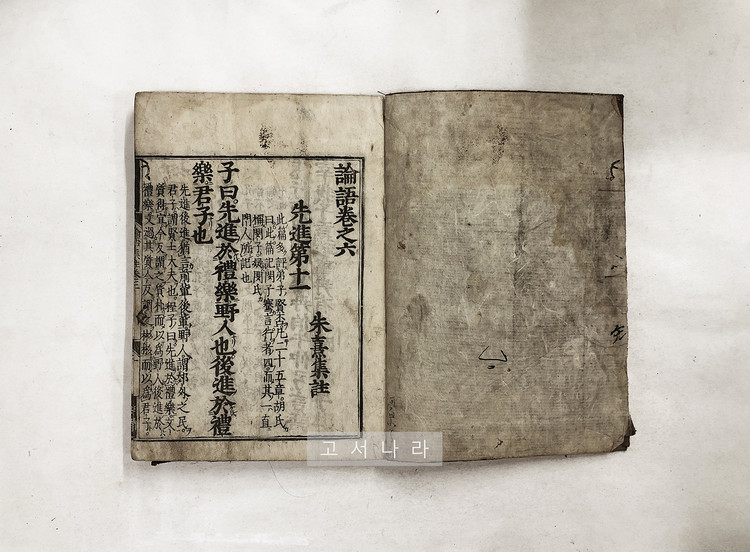 論語卷之六
朱熹集註
先進第十一
此篇多評弟子賢否凡二十五章。胡氏。
曰此篇記閔子騫言行者四而其一直
稱閔子疑閔氏。
門人所記也
子曰先進於禮樂野人也後進於禮
樂君子也
先進後進猶言前輩後輩野人謂郊外之民。
君子謂賢士大夫也。程子曰先進於禮樂文
質得宜今反謂之質朴而以為野人後進於
禮樂文過其質今反謂 彬彬而以為君子。
고서나라